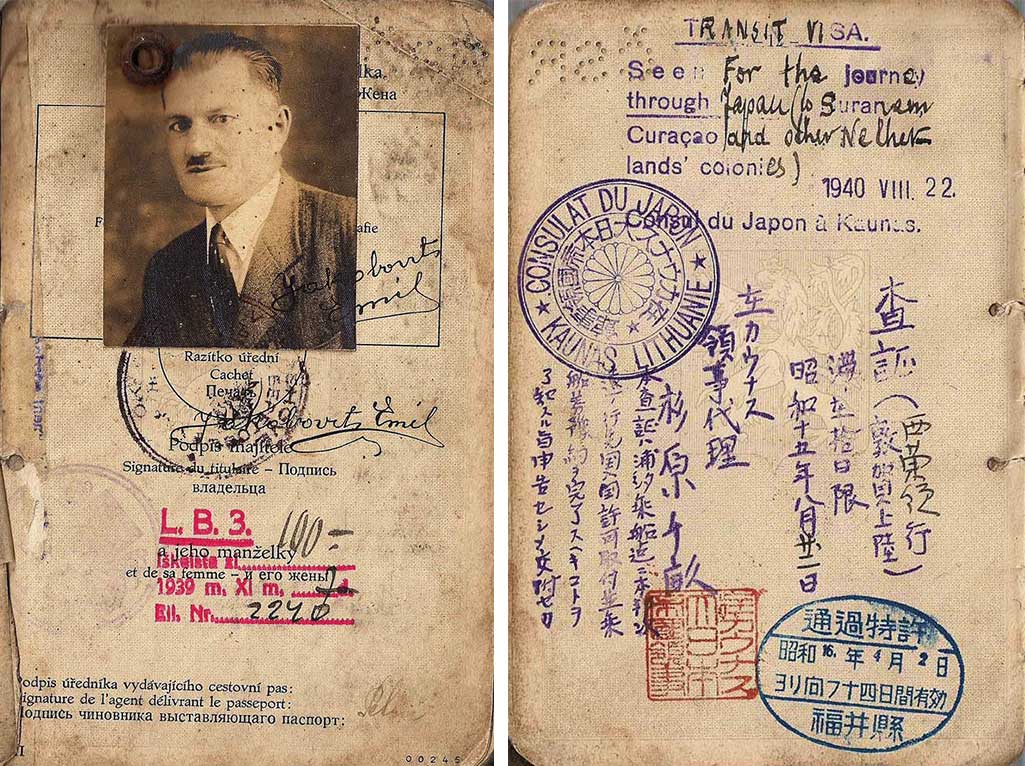 lka.
Жена
afie
Jakobovits
Emil
Razítko úřední
Cachet
Печать
Jakobovits Emil
Podpis majitele
Signature du titulaire – Подпись
владельца
L. B. 3. 100=
a jeho manželky
Iškeista zl.
et de sa femme – и его жены
1939 m. XI m, 7 d.
Eil. Nr. 2240
Podpis úředníka vydávajícího cestovní pas:
Signature de l'agent délivrant le passeport:
Подпись чиновника выставляющего паспорт:
00245
TRANSIT VISA.
Seen For the journey
through Japan (to Suranam,
Curaçao and other Nether-
lands' colonies)
1940 VIII. 22.
Consul du Japon à Kaunas.
CONSULAT DU JAPON
KAUNAS LITHUANIE
査証(西黄後行)
(敦賀上陸)
満在拾日限
昭和十五年八月廿二日
在カウナス
領事代理
杉原千畝
本査証ハ浦汐乗船迄ニ
行先国入国許可取付並乗
船券予約ヲ完了スベキコトヲ
了知スル旨申告セシメ交付セリ
通過特許
昭和16.年4月2日
ヨリ向フ十四日間有効
福井縣